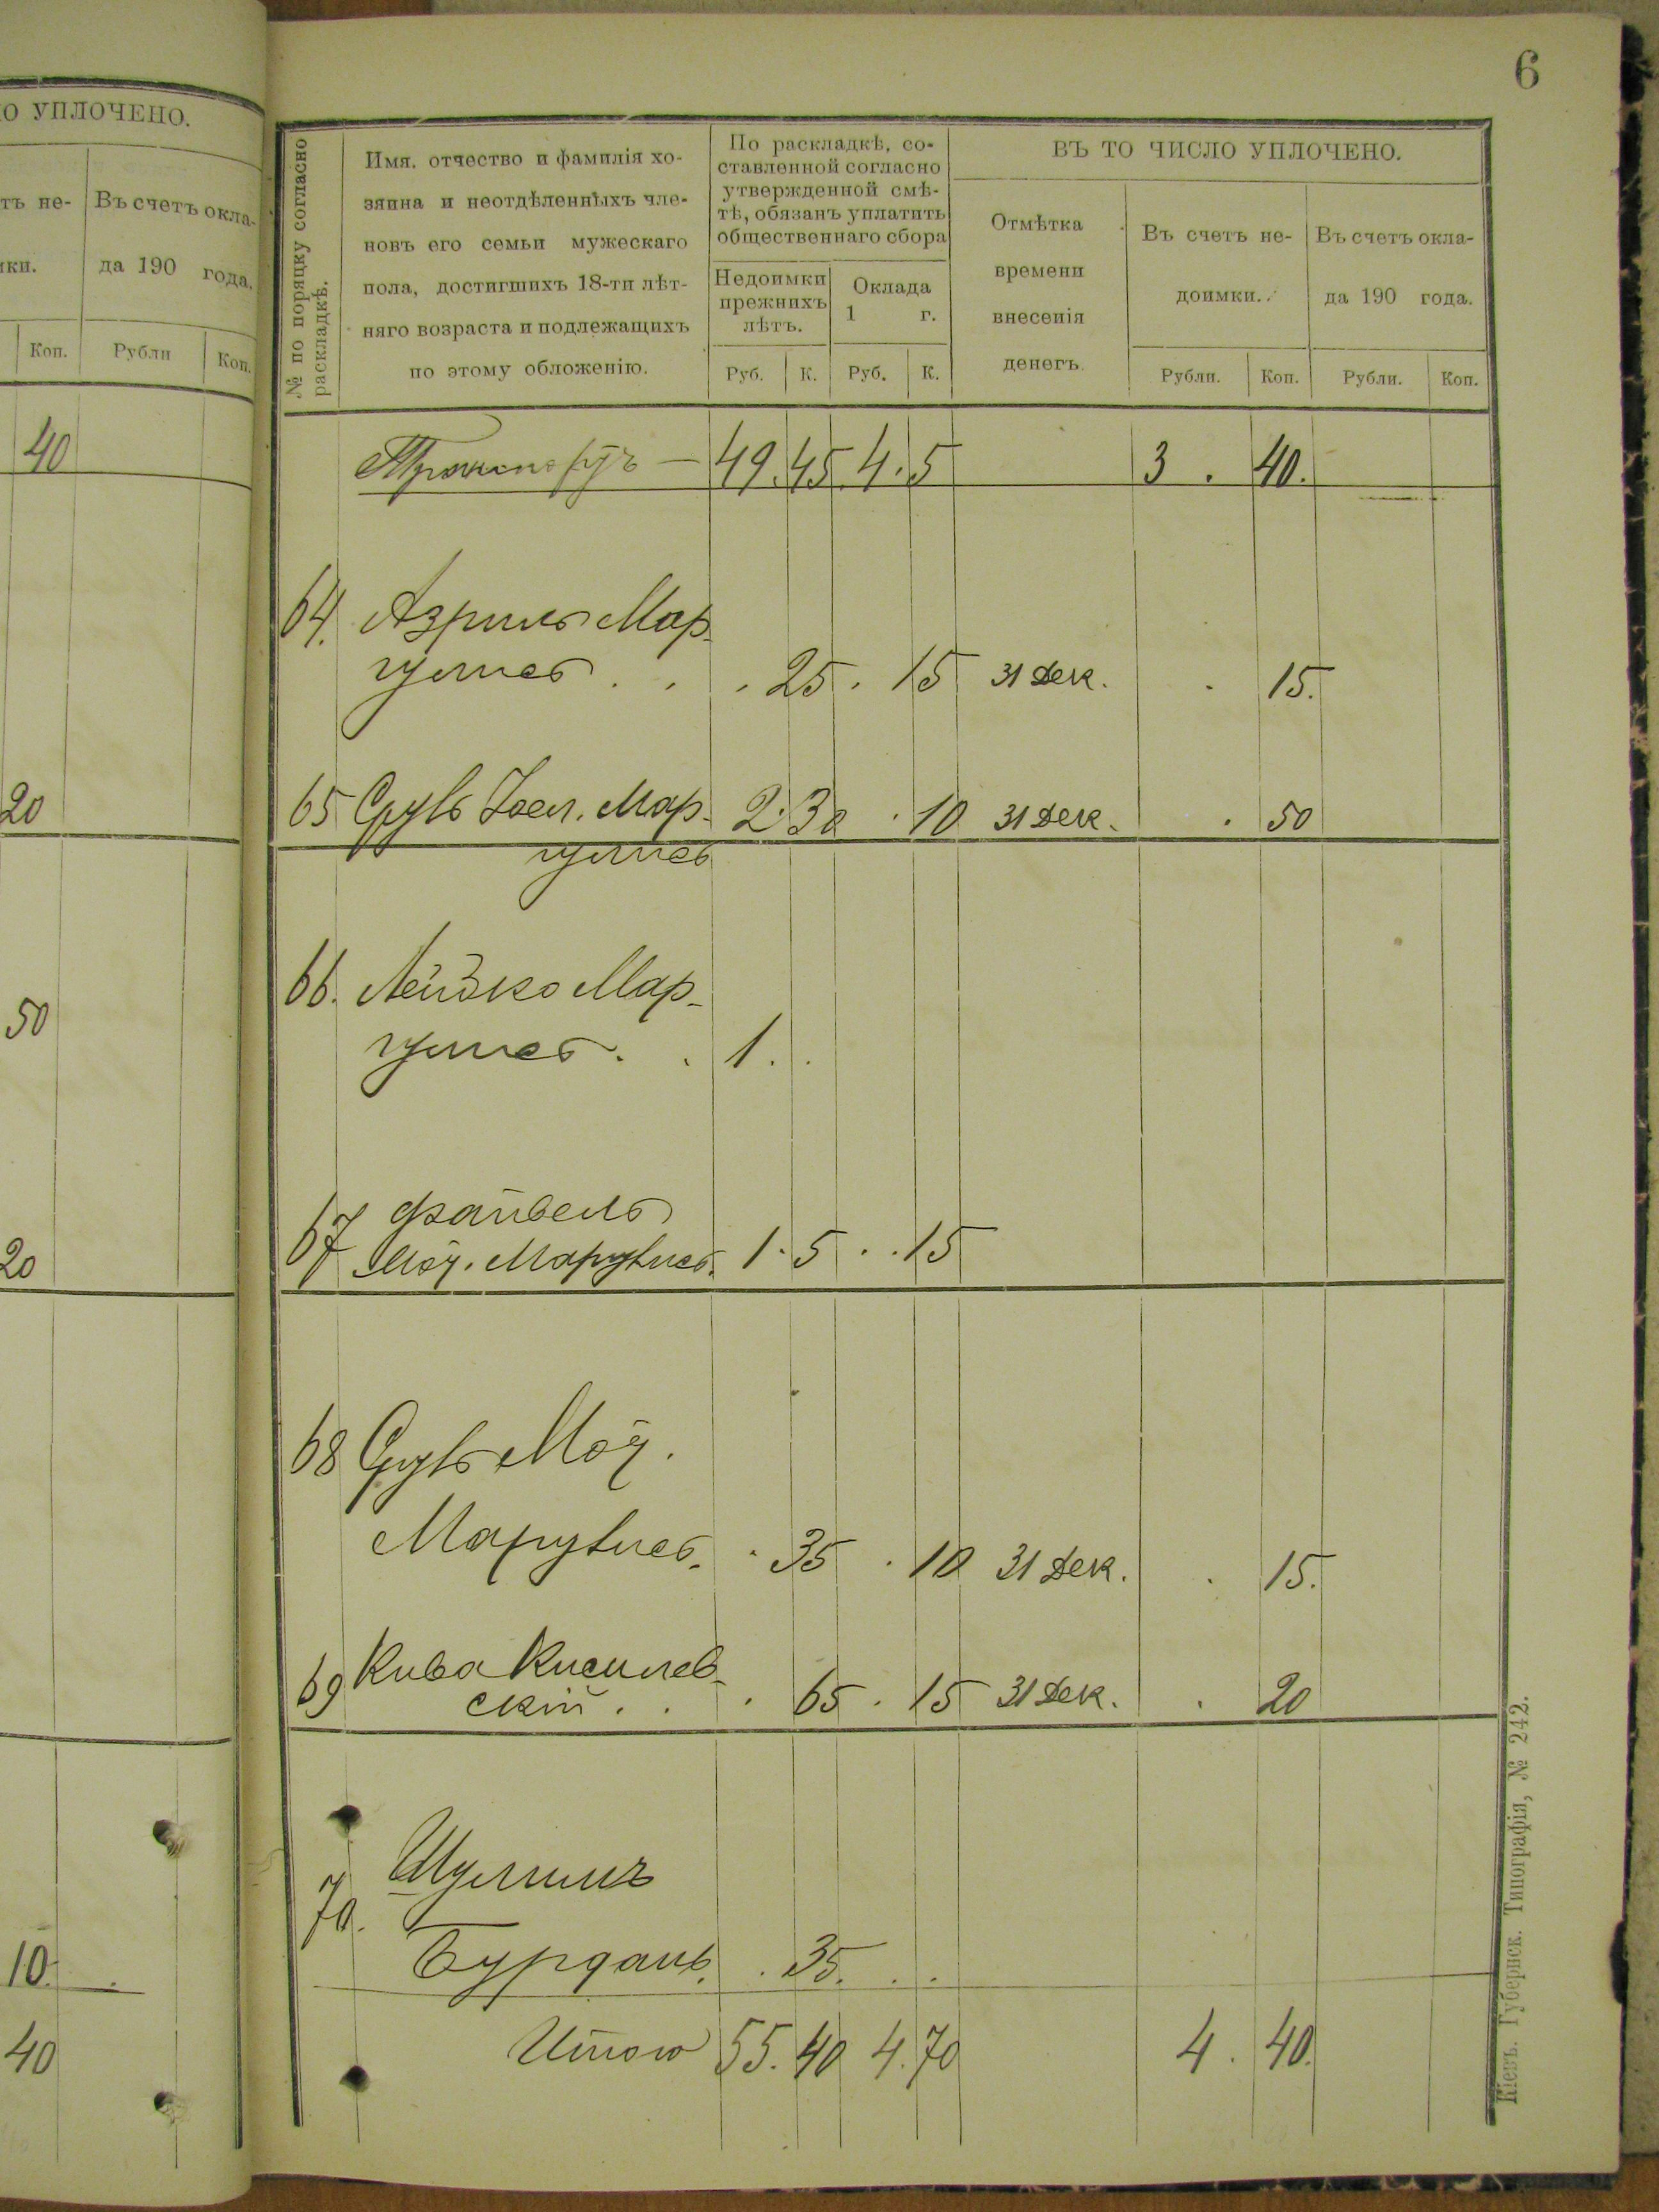 О УПЛОЧЕНО.
ть не-
Въ счетъ окла-
да 190 года.
Коп.
Рубли
Коп.
40
20
50
20
10
40
6
№ по порядку согласно
раскладкѣ.
Имя. отчество и фамилія хо-
зяина и неотдѣленныхъ чле-
новъ его семьи мужескаго
пола, достигшихъ 18-ти лѣт-
няго возраста и подлежащихъ
по этому обложенію.
По раскладкѣ, со-
ставленной согласно
утвержденной смѣ-
тѣ, обязанъ уплатить
общественнаго сбора
Недоимки
прежнихъ
лѣтъ.
Оклада
1 г.
Руб. К. Руб. К.
ВЪ ТО ЧИСЛО УПЛОЧЕНО.
Отмѣтка
времени
внесенія
денегъ.
Въ счетъ не-
доимки.
Въ счетъ окла-
да 190 года.
Рубли. Коп. Рубли. Коп.
Транспортъ — 49. 45. 4. 5 3. 40.
64. Азриль Мар-
гулисъ . . . 25 . 15 31 Дек. . 15.
65 Сруль Мар- 2. 30 . 10 31 Дек. . 50
гулисъ
66. Лейзко Мар-
гулисъ . . 1 . .
67 Файвель
Маргулисъ. 1. 5 . . 15
68 Сруль
Маргулисъ. . 35 . 10 31 Дек. . 15.
69 Кива Кисилев-
скій . . . 65 . 15 31 Дек. . 20
70. Шулимъ
Бурданъ. . 35. . .
Итого 55. 40 4. 70 4. 40.
Кіевъ. Губернск. Типографія, № 242.